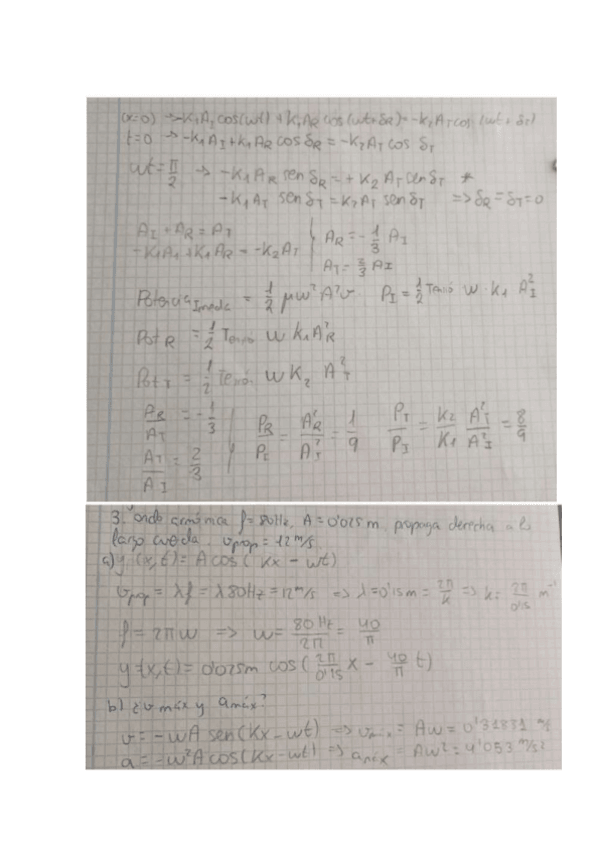 (x=0) → -K₁A_I cos(wt) + K₁A_R cos(wt+δ_R) = -K₂A_T cos (wt+δ_T)
t=0 → -K₁A_I + K₁A_R cos δ_R = -K₂A_T cos δ_T
wt = π/2 → -K₁A_R sen δ_R = + K₂ A_T sen δ_T *
-K₁A_T sen δ_T = K₂A_T sen δ_T => δ_R = δ_T = 0
A_I + A_R = A_T
-K₁A_I + K₁A_R = -K₂A_T
A_R = -1/3 A_I
A_T = 2/3 A_I
Potencia = 1/2 μw²A²v P_I = 1/2 Tensó w·K₁ A_I²
Pot R = 1/2 Tensó w K₁A_R²
Pot T = 1/2 Tensó w K₂ A_T²
= -1/3
A_T/A_I = 2/3
P_R/P_I = A_R²/A_I² = 1/9 P_T/P_I = K₂/K₁ A_T²/A_I² = 8/9
3. onda armónica f=80Hz, A=0'025m, propaga derecha a lo
largo cuerda. v_prop = 12 m/s.
a) y(x,t) = A cos (Kx - wt)
v_prop = λf = λ80Hz = 12 m/s => λ=0'15m = 2π/K => K= 2π/0'15 m⁻¹
f = 2πw => w = 80Hz/2π = 40/π
y(x,t) = 0'025m cos (2π/0'15 x - 40/π t)
b) ¿v máx y a máx?
v = -wA sen (Kx-wt) => v_máx = Aw = 0'31831 m/s
a = -w²A cos (Kx-wt) => a_máx = Aw² = 4'053 m/s²